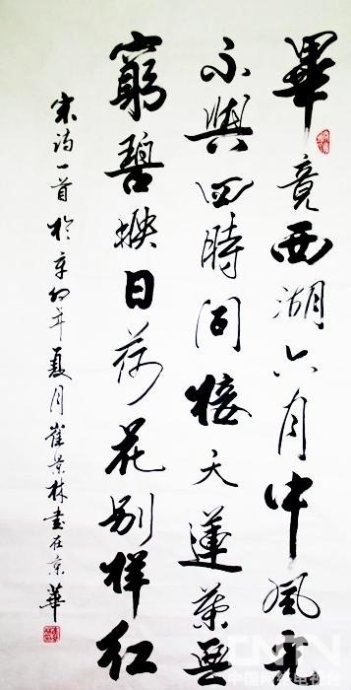 畢竟西湖六月中風光
不與四時同接天蓮葉無
窮碧映日荷花别样红
宋诗一首於辛卯年夏月崔景林書在京華
中国网络电视台